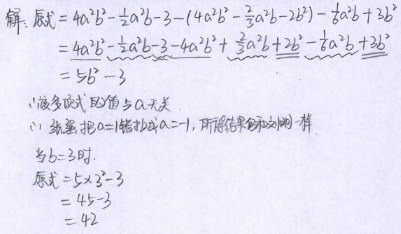 解:原式=4a²b²-½a²b-3-(4a²b²-⅔a²b-2b²)-⅙a²b+3b²
=4a²b²-½a²b-3-4a²b²+⅔a²b+2b²-⅙a²b+3b²
=5b²-3
∵该多项式的值与a无关
∴ 把a=1错抄成a=-1,所得结果一样
当b=3时.
原式=5×3²-3
=45-3
=42